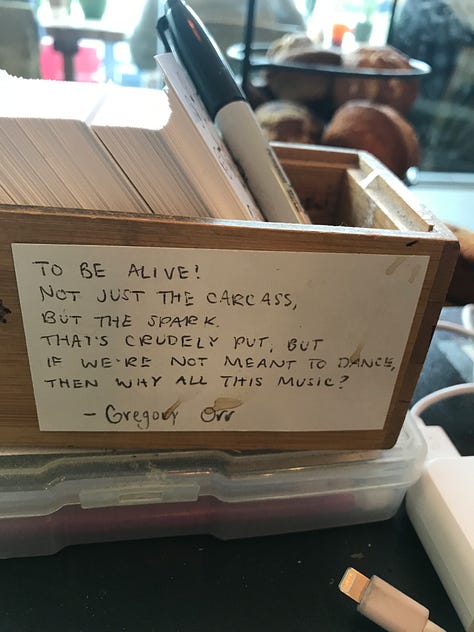 TO BE ALIVE!
NOT JUST THE CARCASS,
BUT THE SPARK.
THAT'S CRUDELY PUT, BUT
IF WE'RE NOT MEANT TO DANCE,
THEN WHY ALL THIS MUSIC?
- Gregory Orr